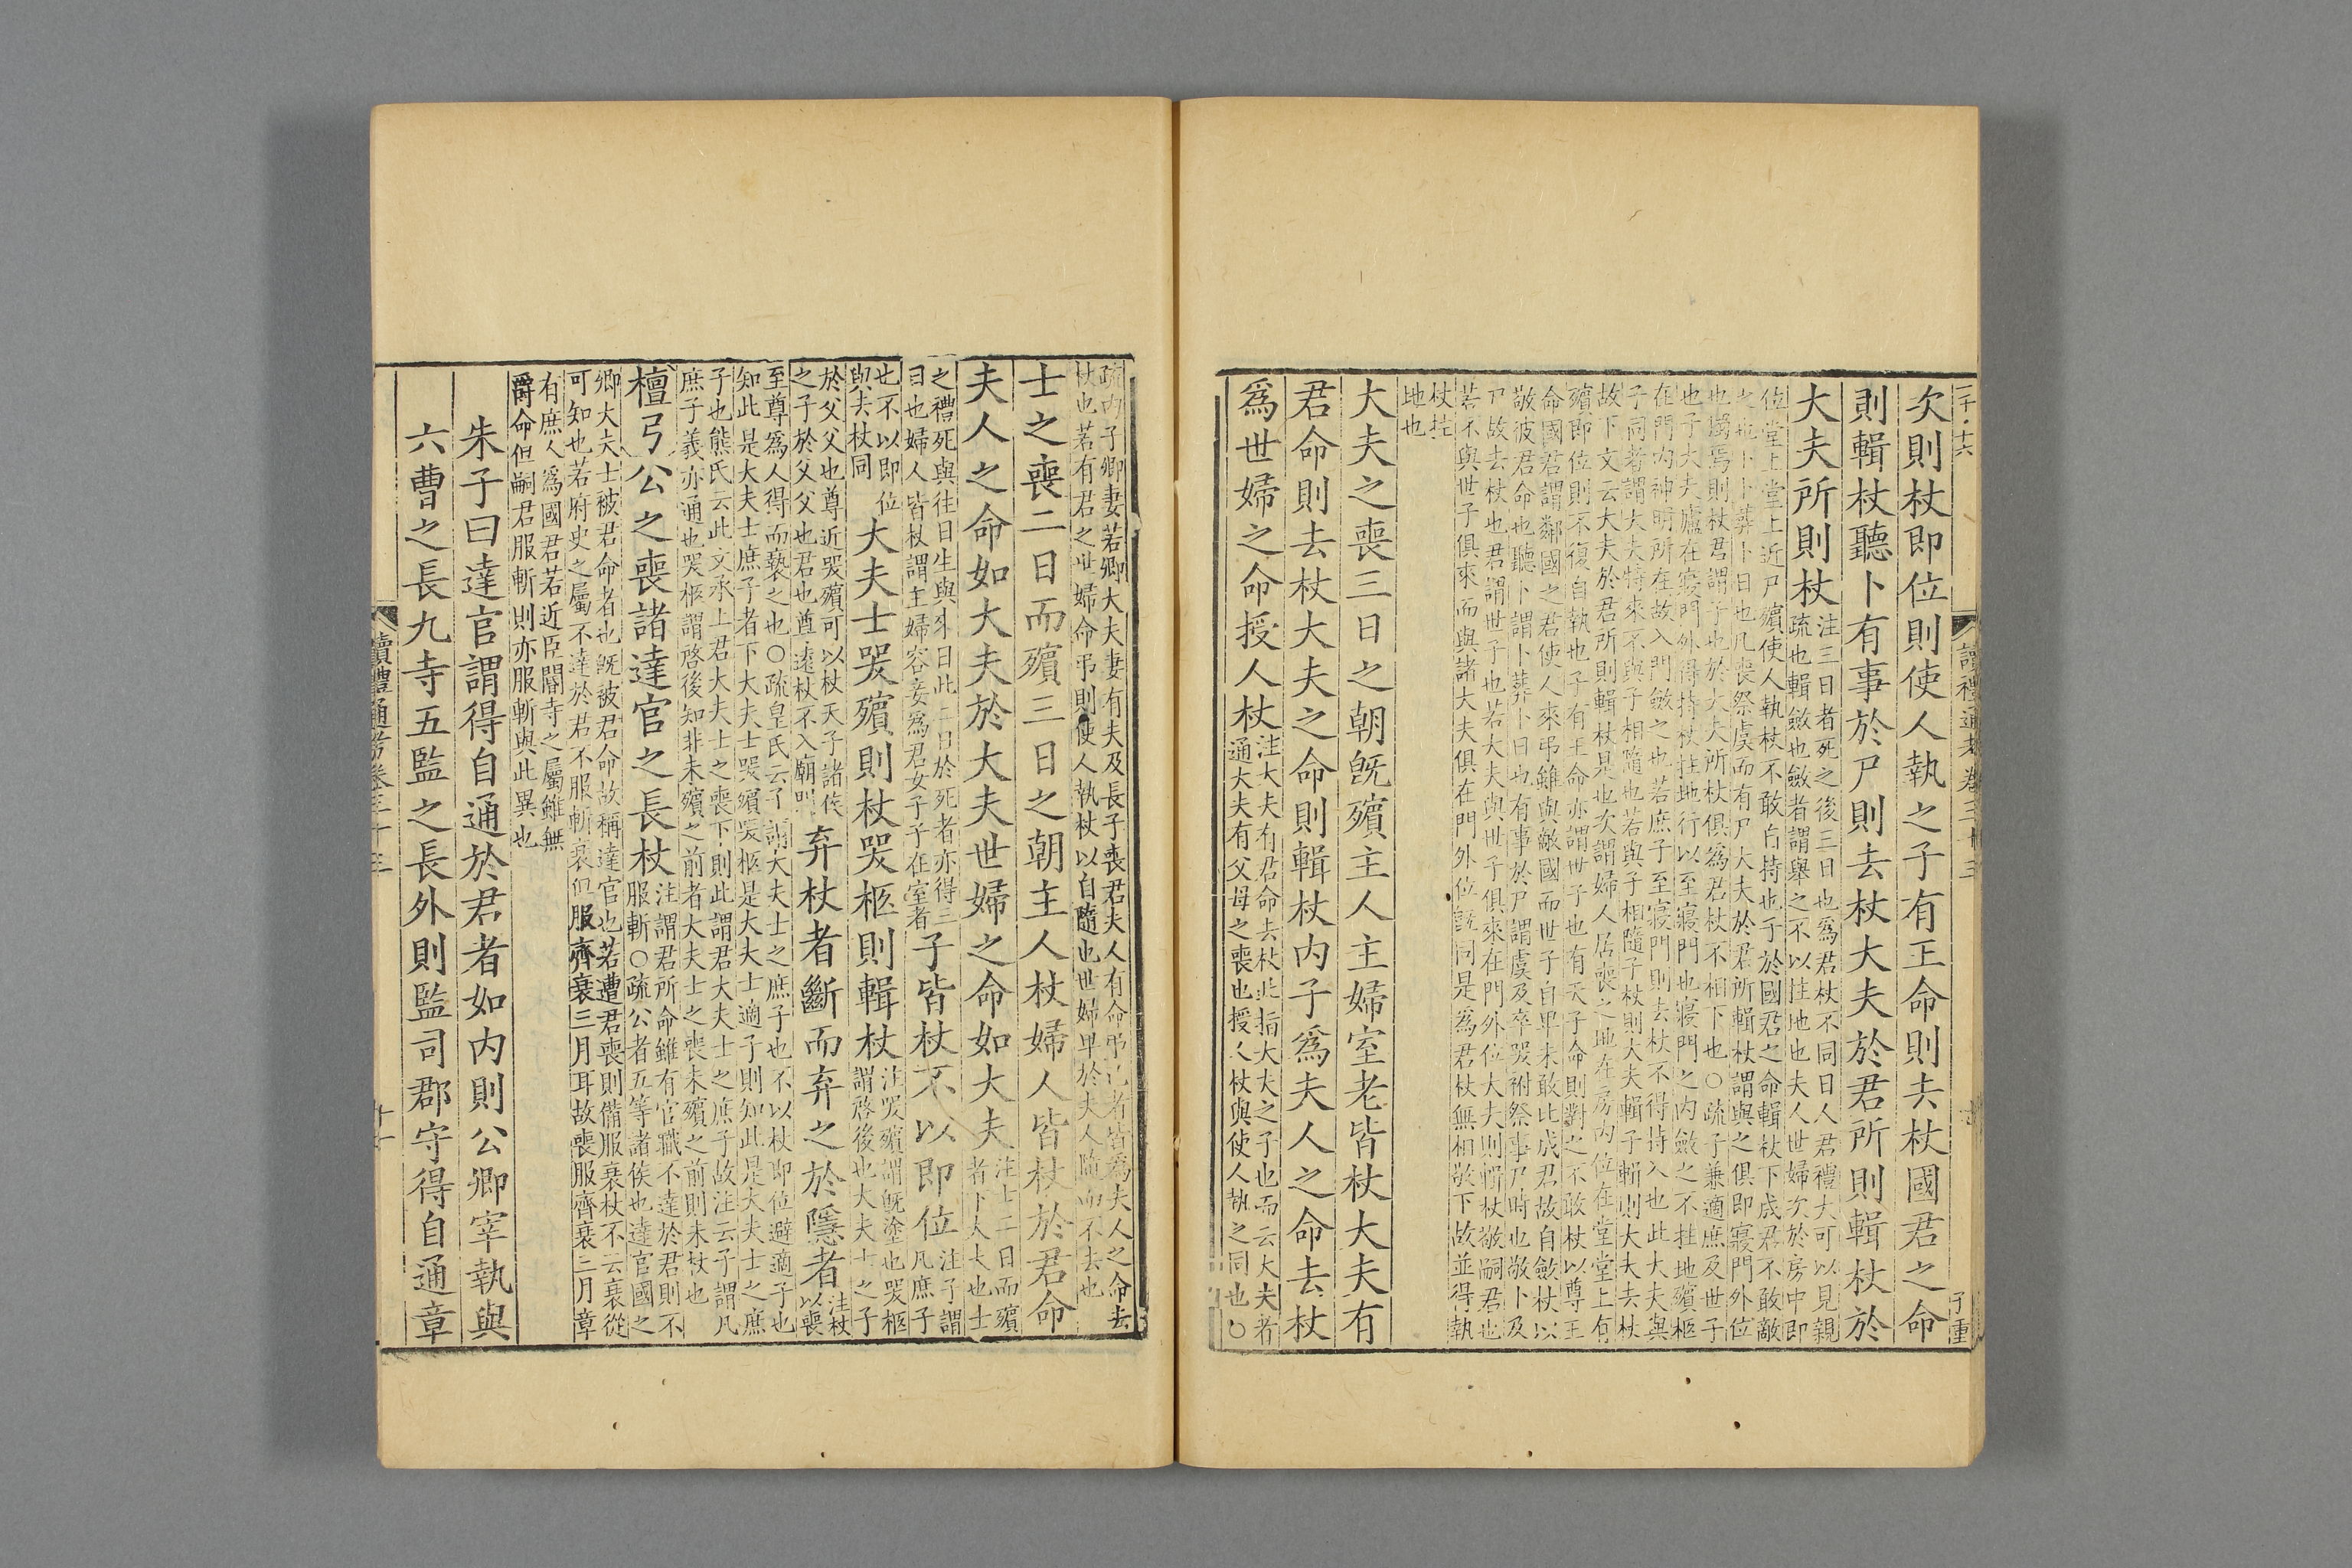 次則杖即位則使人執之子有王命則去杖國君之命
則輯杖聽卜有事於尸則去杖大夫於君所則輯杖於
大夫所則杖
注三日者死之後三日也爲君杖不同日人君禮大可以見親
疏也輯斂也斂者謂舉之不以拄地也夫人世婦次於房中即
位堂上堂上近尸殯使人執杖不敢自持也子於國君之命輯杖下成君不敢敵
之也卜卜葬卜日也凡喪祭虞而有尸大夫於君所輯杖謂與之俱即寢門外位
也獨焉則杖君謂子也於大夫所杖俱爲君杖不相下也○疏子兼適庶及世子
也子大夫廬在寢門外得持杖拄地行以至寢門也寢門之内斂之不拄地殯柩
在門内神明所在故入門斂之也若庶子至寢門則去杖不得持入也此大夫與
子同者謂大夫特來不與子相隨也若與子相隨子杖則大夫輯子輯則大夫去杖
故下文云大夫於君所則輯杖是也次謂婦人居喪之地在房内位在堂堂上有
殯即位則不復自執也子有王命亦謂世子也有天子命則對之不敢杖以尊王
命國君謂鄰國之君使人來弔雖與敵國而世子自卑未敢比成君故自斂杖以
敬彼君命也聽卜謂卜葬卜日也有事於尸謂虞及卒哭祔祭事尸時也敬卜及
尸故去杖也君謂世子也若大夫與世子俱來在門外位大夫則輯杖敬嗣君也
若不與世子俱來而與諸大夫俱在門外位旣同是爲君杖無相敬下故並得執
杖拄
地也
大夫之喪三日之朝旣殯主人主婦室老皆杖大夫有
君命則去杖大夫之命則輯杖内子爲夫人之命去杖
爲世婦之命授人杖
注大夫有君命去杖此指大夫之子也而云大夫者
通大夫有父母之喪也授人杖與使人執之同也○
疏内子卿妻若卿大夫妻有夫及長子喪君夫人有命弔己者皆爲夫人之命去
杖也若有君之世婦命弔則使人執杖以自隨也世婦卑於夫人隨而不去也
士之喪二日而殯三日之朝主人杖婦人皆杖於君命
夫人之命如大夫於大夫世婦之命如大夫
注士二日而殯
者下大夫也士
之禮死與往日生與來日此二日於死者亦得三
日也婦人皆杖謂主婦容妾爲君女子子在室者
子皆杖不以即位
注子謂
凡庶子
也不以即位
與去杖同
大夫士哭殯則杖哭柩則輯杖
注哭殯謂旣塗也哭柩
謂啓後也大夫士之子
於父父也尊近哭殯可以杖天子諸侯
之子於父父也君也尊遠杖不入廟門
弃杖者斷而弃之於隱者
注杖
以喪
至尊爲人得而褻之也○疏皇氏云子謂大夫士之庶子也不以杖即位避適子也
知此是大夫士庶子者下大夫士哭殯哭柩是大夫士適子則知此是大夫士之庶
子也熊氏云此文承上君大夫士之喪下則此謂君大夫士之庶子故注云子謂凡
庶子義亦通也哭柩謂啓後知非未殯之前者大夫士之喪未殯之前則未杖也
檀弓公之喪諸達官之長杖
注謂君所命雖有官職不達於君則不
服斬○疏公者五等諸侯也達官國之
卿大夫士被君命者也旣被君命故稱達官也若遭君喪則備服衰杖不云衰從
可知也若府史之屬不達於君不服斬衰但服齊衰三月耳故喪服齊衰三月章
有庶人爲國君若近臣閽寺之屬雖無
爵命但嗣君服斬則亦服斬與此異也
朱子曰達官謂得自通於君者如内則公卿宰執與
六曹之長九寺五監之長外則監司郡守得自通章
讀禮通考卷三十三